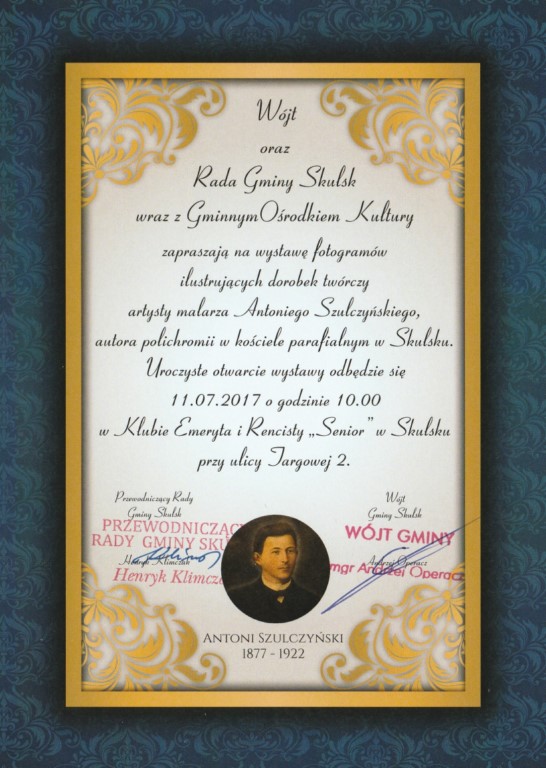 Wójt
oraz
Rada Gminy Skulsk
wraz z GminnymOśrodkiem Kultury
zapraszają na wystawę fotogramów
ilustrujących dorobek twórczy
artysty malarza Antoniego Szulczyńskiego,
autora polichromii w kościele parafialnym w Skulsku.
Uroczyste otwarcie wystawy odbędzie się
11.07.2017 o godzinie 10.00
w Klubie Emeryta i Rencisty „Senior” w Skulsku
przy ulicy Targowej 2.
Przewodniczący Rady
Gminy Skulsk
PRZEWODNICZĄC
RADY GMINY SKU
Henryk Klimczak
Henryk Klimcza
Wójt
Gminy Skulsk
WÓJT GMINY
Andrzej Operacz
mgr Andrzej Operacz
ANTONI SZULCZYŃSKI
1877 - 1922